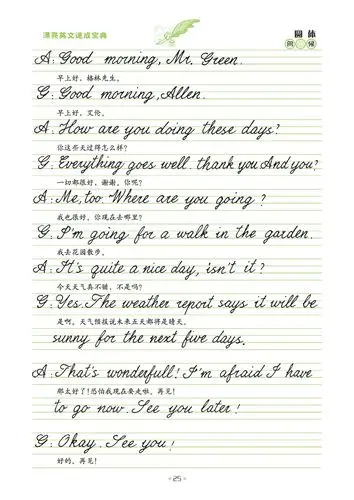 漂亮英文速成宝典
圆体
问候
A: Good morning, Mr. Green.
早上好，格林先生。
G: Good morning, Allen.
早上好，艾伦。
A: How are you doing these days?
你这些天过得怎么样？
G: Everything goes well. thank you And you?
一切都很好，谢谢，你呢？
A: Me, too. Where are you going?
我也很好，你现在去哪里？
G: I'm going for a walk in the garden.
我去花园散步。
A: It's quite a nice day, isn't it?
今天天气真不错，不是吗？
G: Yes. The weather report says it will be
是啊，天气预报说未来五天都将是晴天。
sunny for the next five days.
A: That's wonderfull! I'm afraid I have
那太好了！恐怕我现在要走啦，再见！
to go now. See you later!
G: Okay. See you!
好的，再见！
·25·